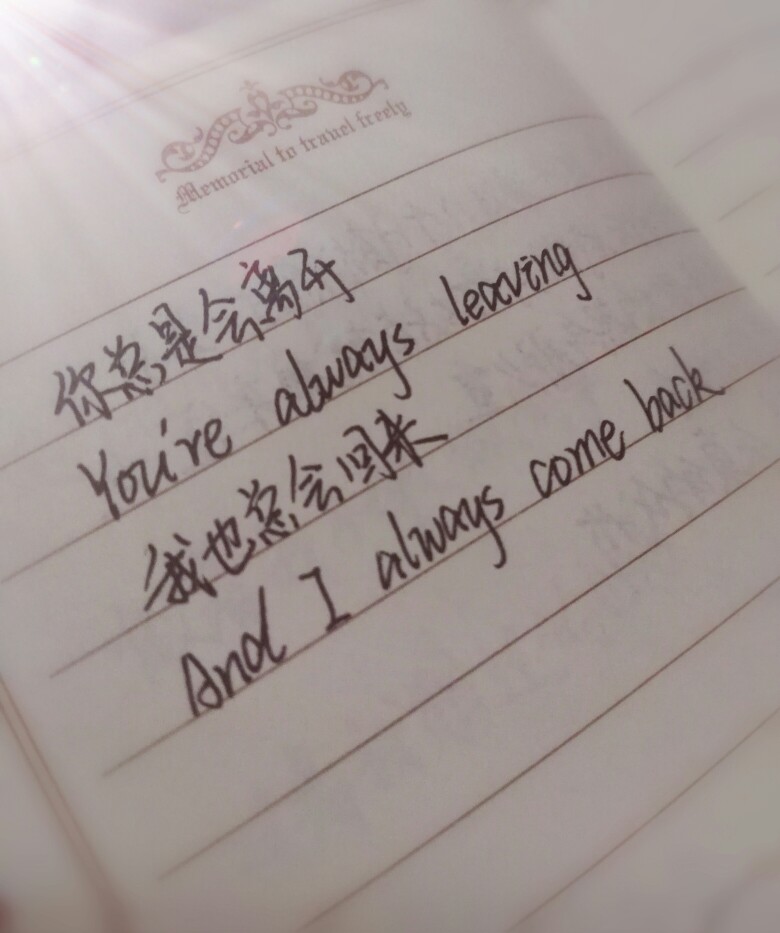 Memorial to travel freely
你总是会离开
You're always leaving
我也总会回来
And I always come back